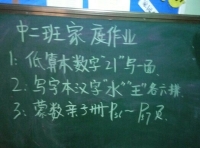 中二班家庭作业
1：低算本数字“21”写一面
2：写字本汉字“水”“王”各六排
3：蒙数第3册P36～P37页。